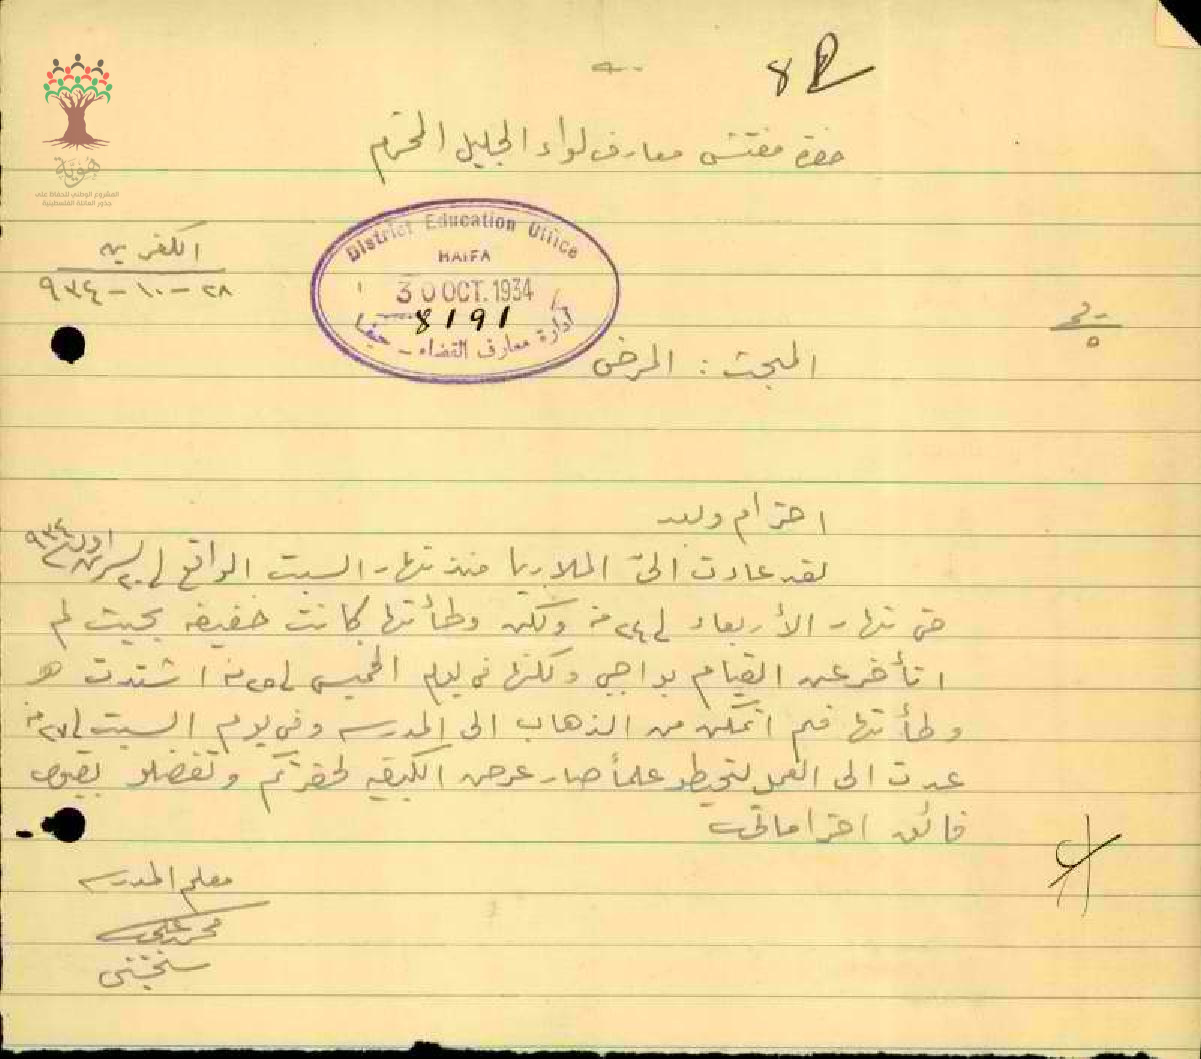 82
حضرة مفتش معارف لواء الجليل المحترم
هُوِيَّة
المشروع الوطني للحفاظ على
جذور العائلة الفلسطينية
الكفرين
٢٨-١٠-٩٣٤
District Education Office
HAIFA
30 OCT. 1934
8191
ادارة معارف القضاء - حيفا
المبحث : المرض
احترام وبعد
لقد عادت اليّ الملاريا منذ نهار السبت الواقع في ٢٠ تشرين اول ٩٣٤
حتى نهار الأربعاء في ٢٤ منه ولكن وطأتها كانت خفيفه بحيث لم
اتأخر عن القيام بواجبي ولكنها في يوم الخميس في ٢٥ منه اشتدت
وطأتها فلم اتمكن من الذهاب الى المدرسه وفي يوم السبت في ٢٧ منه
عدت الى العمل لتحيطو علماً صار عرض الكيفيه لحضرتكم وتفضلو بقبول
فائق احتراماتي
معلم المدرسه
محمد علي